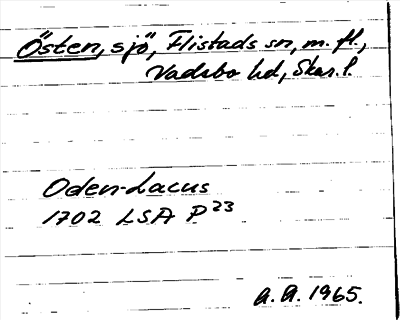 Östen, sjö, Flistads sn, m. fl.,
Vadsbo hd, Skar. l.
Oden-Lacus
1702 LSA P 23
A. A. 1965.